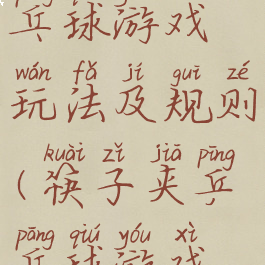 乒球游戏
wán fǎ jí guī zé
玩法及规则
kuài zǐ jiā pīng
(筷子夹乒
pāng qiú yóu xì
乓球游戏